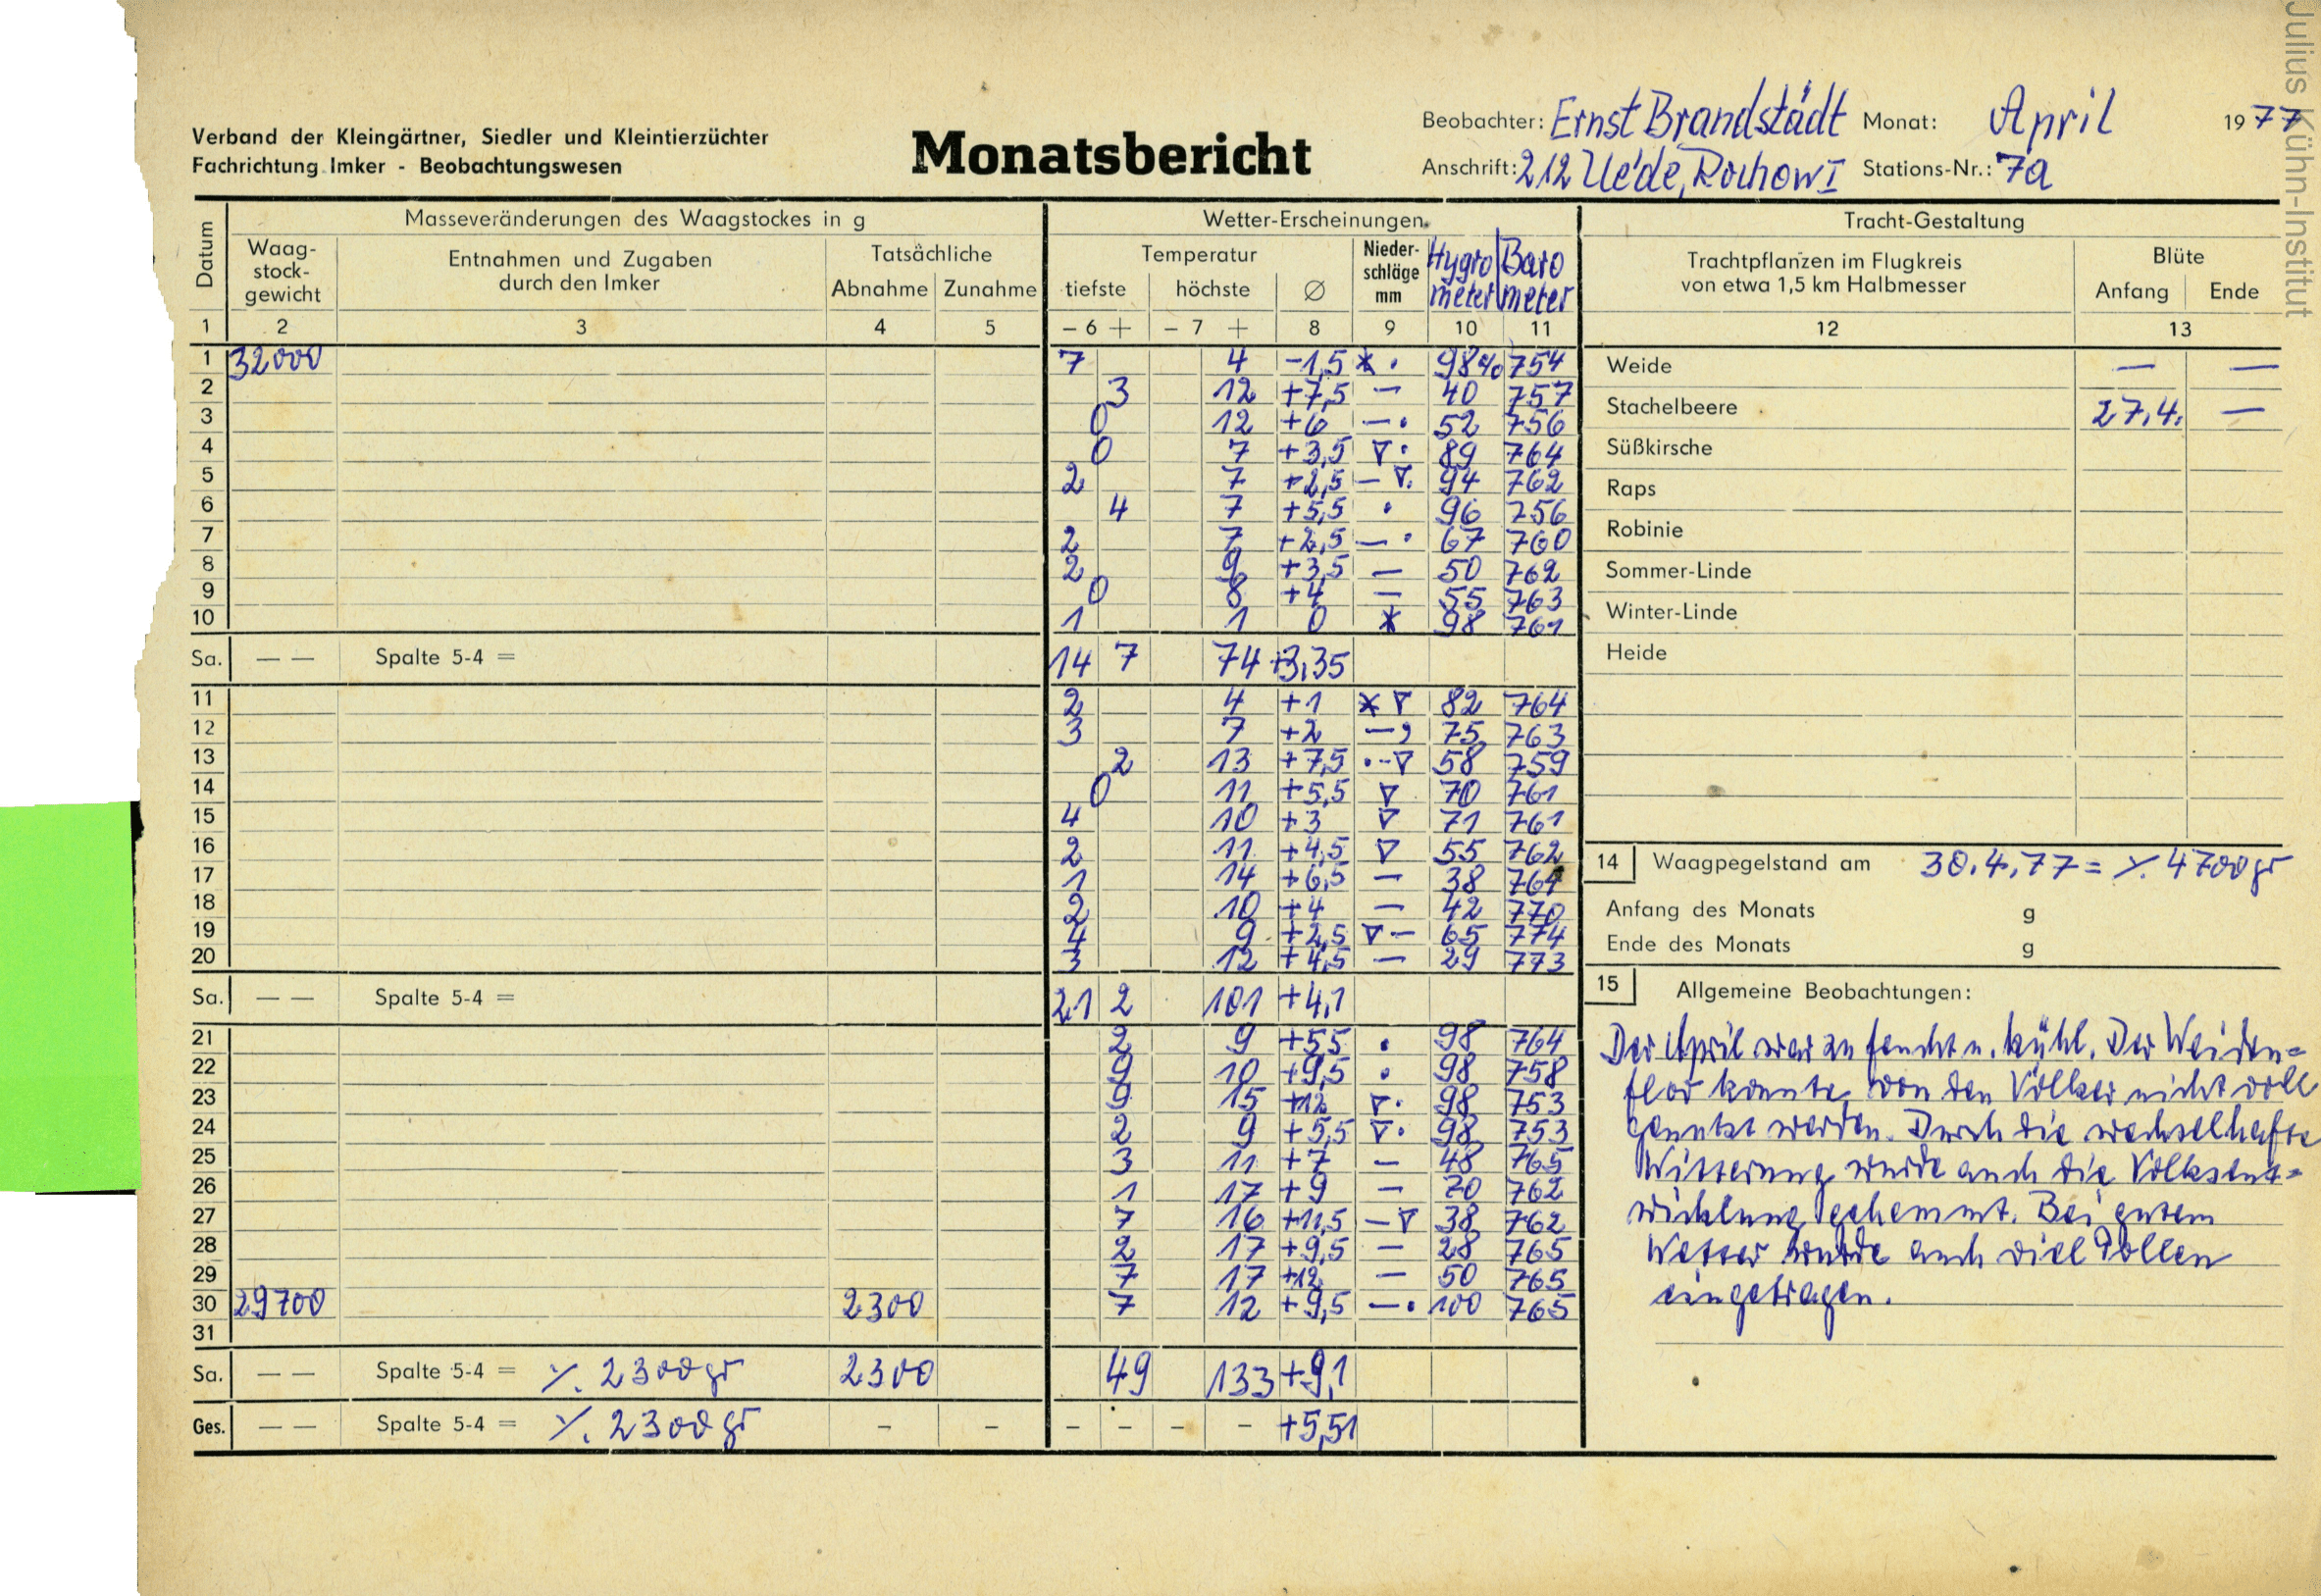 Julius Kühn-Institut
Verband der Kleingärtner, Siedler und Kleintierzüchter
Fachrichtung Imker - Beobachtungswesen
Monatsbericht
Beobachter: Ernst Brandstädt Monat: April 1977
Anschrift: 212 Ue'de, Rochow I Stations-Nr.: 7a
Datum
Masseveränderungen des Waagstockes in g
Waag-stock-gewicht
Entnahmen und Zugaben durch den Imker
Tatsächliche
Abnahme Zunahme
Wetter-Erscheinungen
Temperatur
tiefste höchste Ø
Nieder-schläge mm
Hygro meter
Baro meter
Tracht-Gestaltung
Trachtpflanzen im Flugkreis
von etwa 1,5 km Halbmesser
Blüte
Anfang Ende
1 2 3 4 5 – 6 + – 7 + 8 9 10 11 12 13
1 32000 7 4 -1,5 * . 98% 754
2 3 12 +7,5 – 40 757
3 0 12 +6 – . 52 756
4 0 7 +3,5 ∇ . 89 764
5 2 7 +2,5 – ∇. 94 762
6 4 7 +5,5 . 96 756
7 2 7 +2,5 – . 67 760
8 2 9 +3,5 – 50 762
9 0 8 +4 – 55 763
10 1 1 0 * 98 761
Sa. – – Spalte 5-4 = 14 7 74 +3,35
11 2 4 +1 * ∇ 82 764
12 3 7 +2 – , 75 763
13 2 13 +7,5 . - ∇ 58 759
14 0 11 +5,5 ∇ 70 761
15 4 10 +3 ∇ 71 761
16 2 11 +4,5 ∇ 55 762
17 1 14 +6,5 – 38 764
18 2 10 +4 – 42 770
19 4 9 +2,5 ∇ – 65 774
20 3 12 +4,5 – 29 773
Sa. – – Spalte 5-4 = 21 2 101 +4,1
21 2 9 +5,5 . 98 764
22 9 10 +9,5 . 98 758
23 9 15 +12 ∇ . 98 753
24 2 9 +5,5 ∇ . 98 753
25 3 11 +7 – 48 765
26 1 17 +9 – 70 762
27 7 16 +11,5 – ∇ 38 762
28 2 17 +9,5 – 28 765
29 7 17 +12 – 50 765
30 29700 2300 7 12 +9,5 – . 100 765
31
Sa. – – Spalte 5-4 = ⁒ 2300 gr 2300 49 133 +9,1
Ges. – – Spalte 5-4 = ⁒ 2300 gr – – – – – – +5,51
Weide — —
Stachelbeere 27.4. —
Süßkirsche
Raps
Robinie
Sommer-Linde
Winter-Linde
Heide
14 Waagpegelstand am 30.4.77 = ⁒ 4700 gr
Anfang des Monats g
Ende des Monats g
15 Allgemeine Beobachtungen:
Der April war zu feucht u. kühl. Der Weiden=
flor konnte von den Völker nicht voll
genutzt werden. Durch die wechselhafte
Witterung wurde auch die Volksent=
wicklung gehemmt. Bei gutem
Wetter wurde auch viel Pollen
eingetragen.